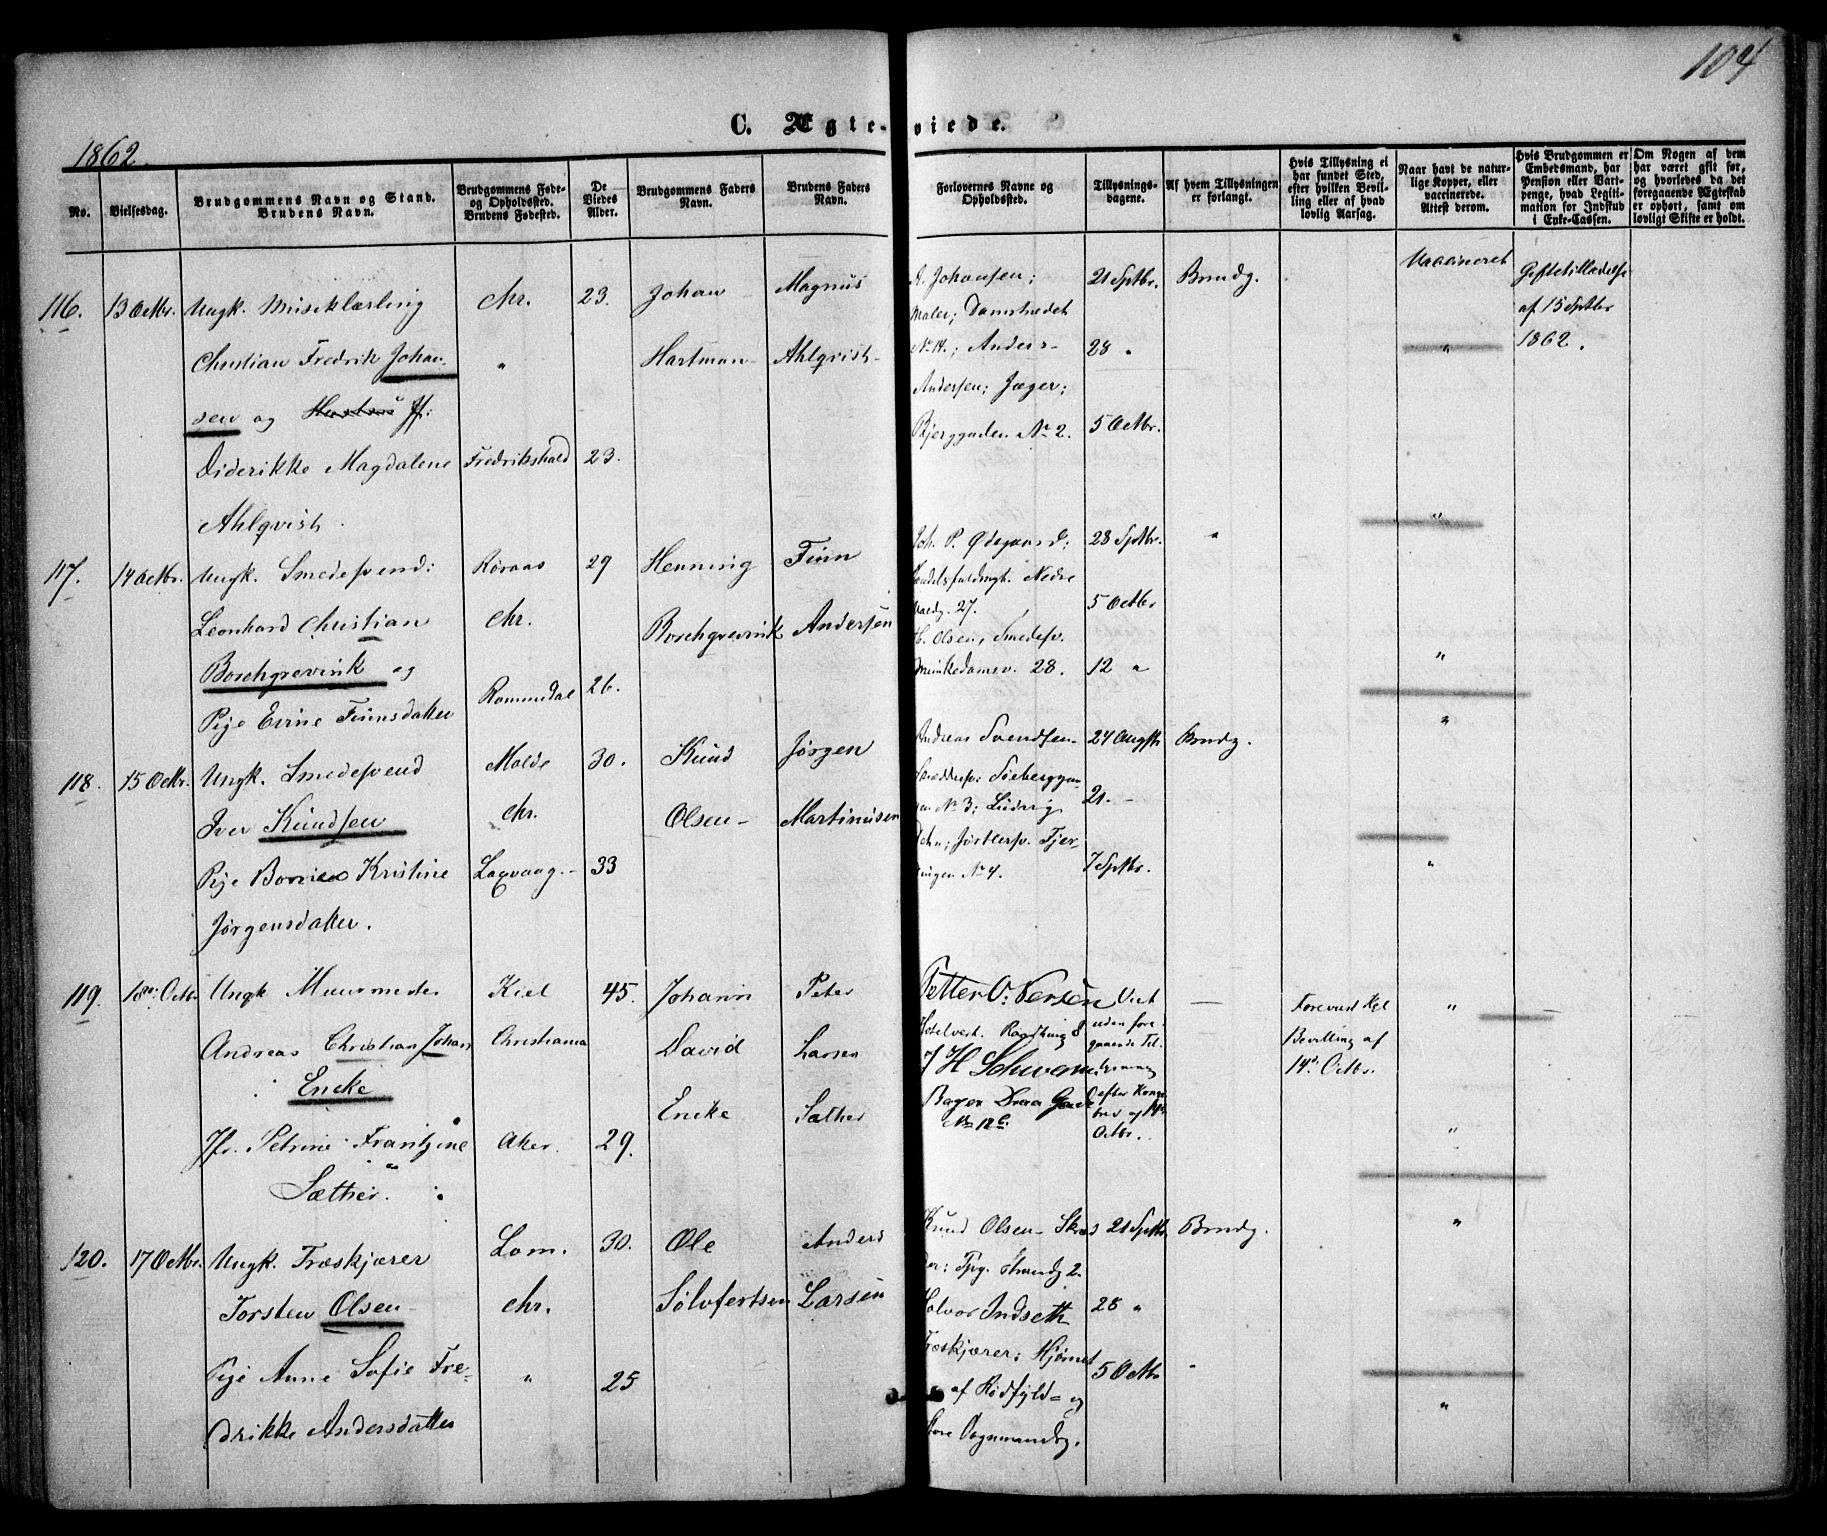 104
C. Ægte- viede.
1862.
No.
Vielsesdag.
Brudgommens Navn og Stand.
Brudens Navn.
Brudgommens Føde-
og Opholdssted.
Brudens Fødested.
De
Viedes
Alder.
Brudgommens Faders
Navn.
Brudens Faders
Navn.
Forlovernes Navne og
Opholdssted.
Tillysnings-
dagene.
Af hvem Tillysningen
er forlangt.
Hvis Tillysning ei
har fundet Sted,
efter hvilken Bevil-
ling eller af hvad
lovlig Aarsag.
Naar havt de natur-
lige Kopper, eller
vaccinerede.
Attest derom.
Hvis Brudgommen er
Embedsmand, har
Pension eller Vart-
penge, hvad Legiti-
mation for Indskud
i Enke-Cassen.
Om Nogen af dem
har været gift før,
og hvorledes da det
foregaaende Ægteskab
er ophørt, samt om
lovligt Skifte er holdt.
116. 13 Octbr. Ungk. Musiklærling Chr. 23. Johan Magnus A. Johansen; 21 Septbr. Brudg. Vaccineret Giftetilladelse
Maler; Damstrædet af 15 Septbr
Christian Fredrik Johan- " Hartman- Ahlqvist- No 14.; Anders- 28 " " 1862.
Andersen; Jæger;
sen og Jf: Bjerggaden No 2. 5 Octbr.
Diderikke Magdalene Fredrikshald 23.
Ahlqvist. "
117. 14 Octbr. Ungk. Smedesvend: Røraas 29 Henning Finn Joh. P. Ødegaard; 28 Septbr. "
Nedre
Leonhard Christian Chr. Borchgrevink Andersen 27. 5 Octbr
H. Olsen, Smedesv.
Borchgrevink og Munkedamsv. 28. 12 " "
Pige Evine Finnsdatter Romsdal 26. "
118. 15 Octbr. Ungk. Smedesvend Molde 30. Knud Jørgen Andreas Svendsen- 24 Augstr Brudg.
Iver Knudsen Chr. Olsen- Martinusen No 3; Ludvig 21. -
Pige Kristine 33 No 4. 7 Septbr. "
Jørgensdatter.
119. 18de Octbr Ungk Muurmester Kiel 45. Johann Peter Petter O: Viet — Forevist Kgl "
uden fore- Bevilling af
Andreas Christian Johan Christiania David Larsen J H gaaende Til- 14de Octbr.
Encke Encke Sæther Bager lysning
No 12 C. efter Konge
brev af 14de
Octbr.
Jfr. Petrine Frantzine Aker. 29. "
Sæther.
120. 17 Octbr. Ungk. Træskjærer Lom. 30. Ole Anders Knud Olsen- 21 Septbr. Brudg. "
Torsten Olsen- Chr. Sølvfertsen Larsen Halvor Indseth 28 "
Træskjærer; Hjørnet
Pige Anne Sofie Fre- " 25 af Rødfyld- og 5 Octbr " "
drikke Andersdatter Store Vognmandsg.